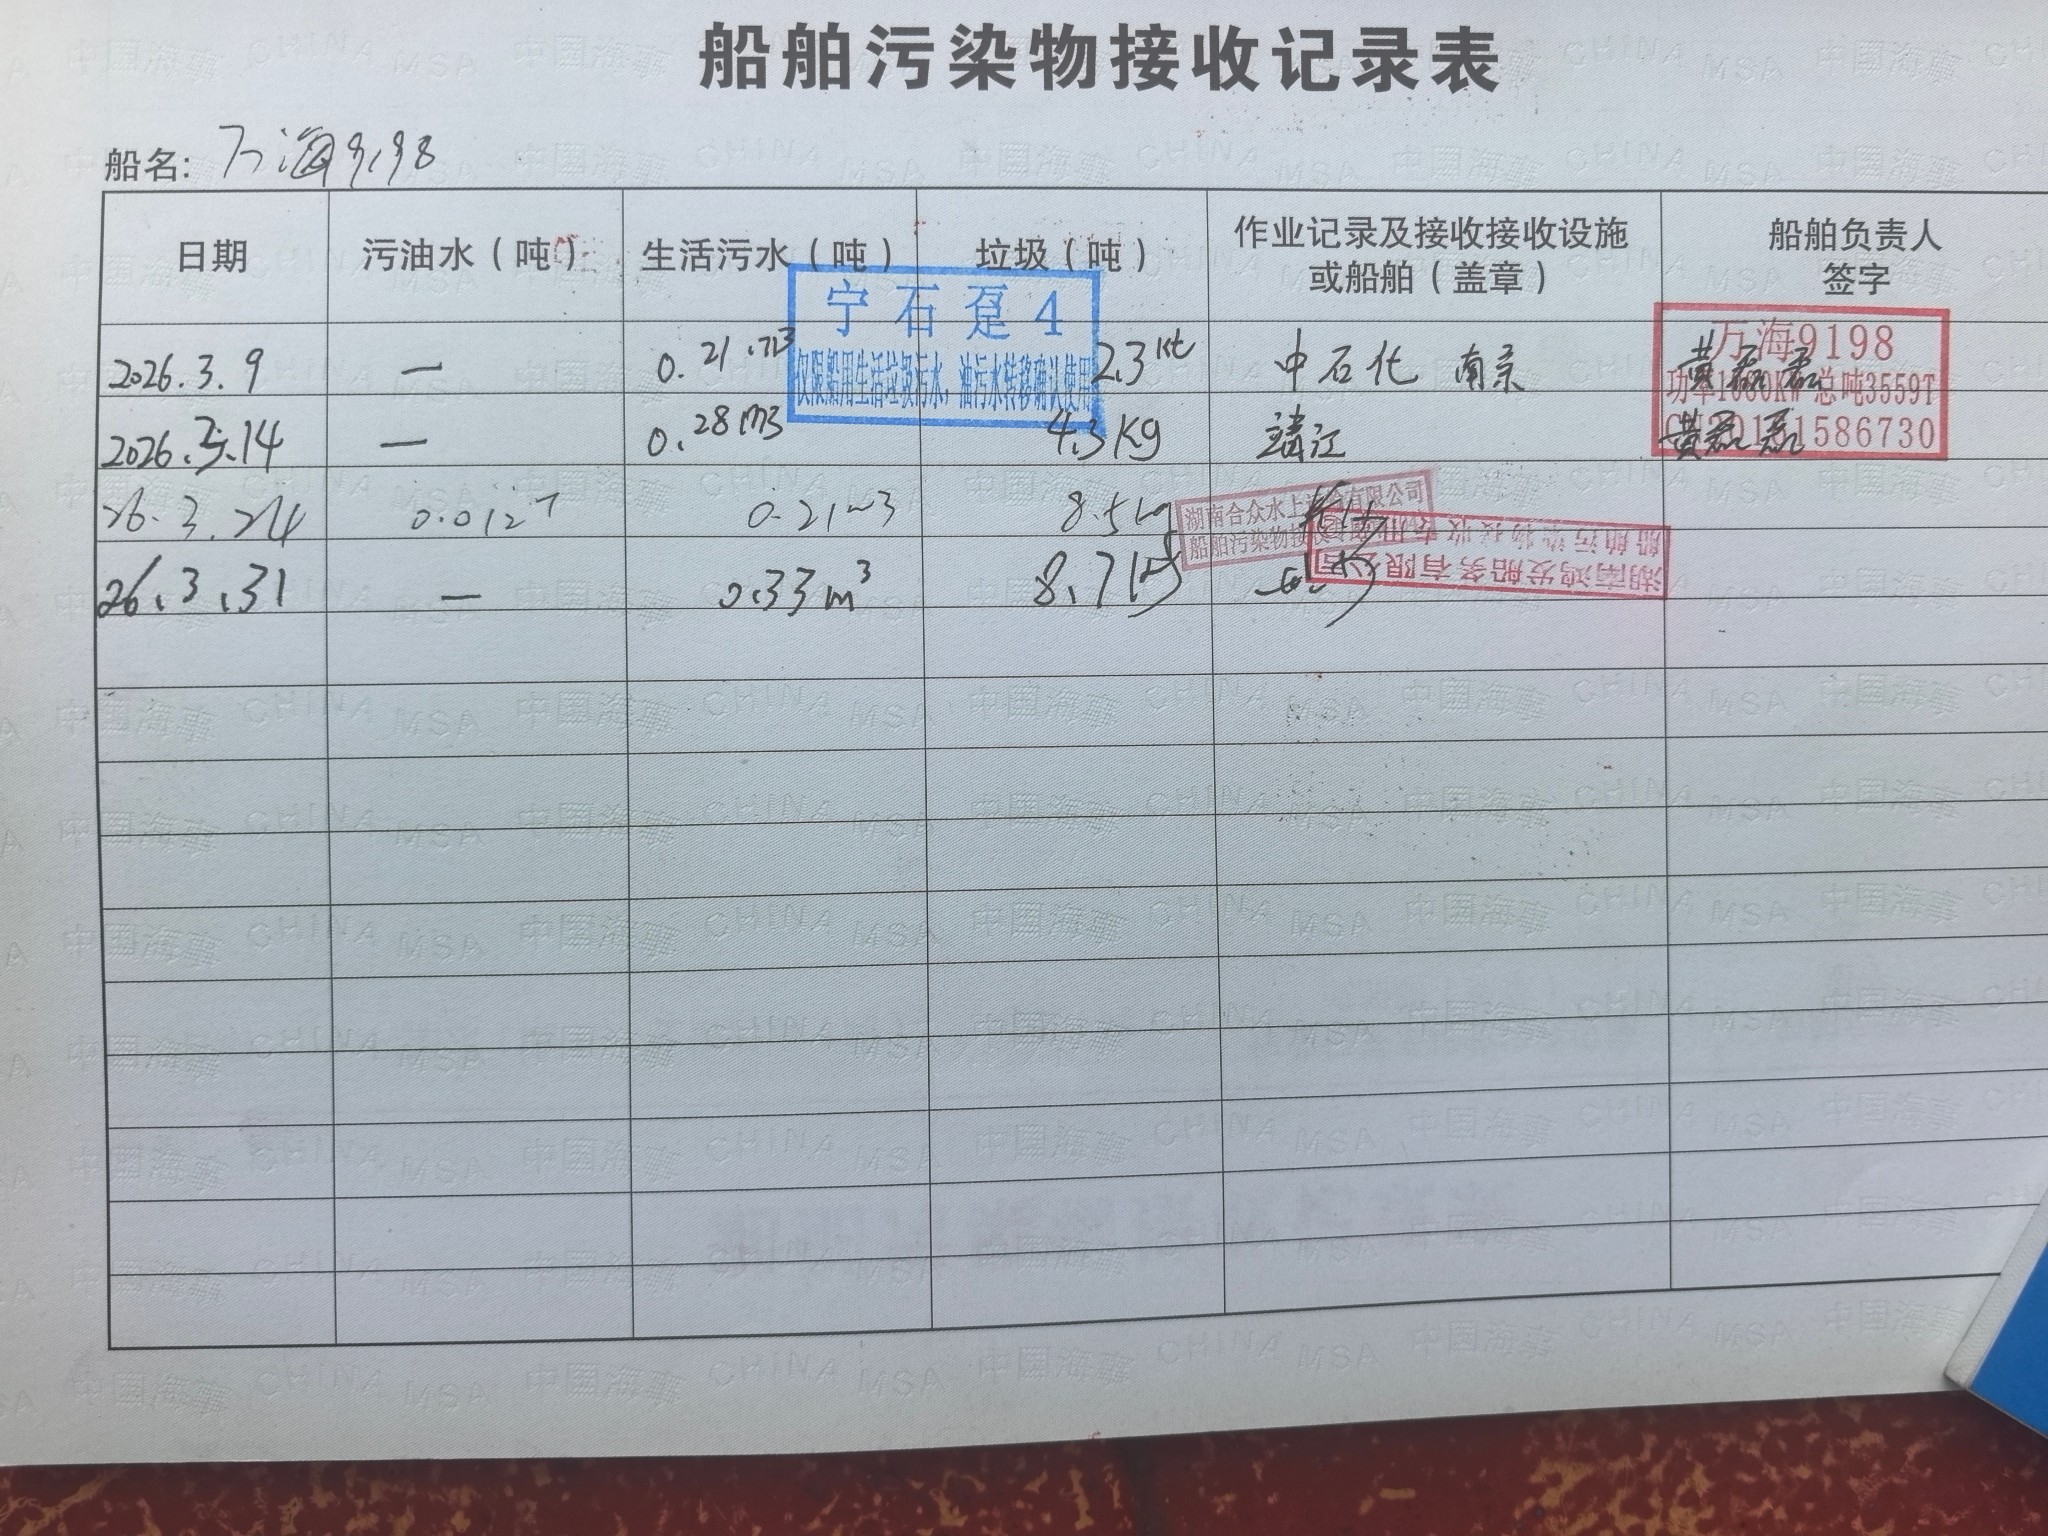 船舶污染物接收记录表
船名: 万海9198
日期 污油水（吨） 生活污水（吨） 垃圾（吨） 作业记录及接收接收设施或船舶（盖章） 船舶负责人签字
宁石趸4
仅限船用生活垃圾污水，油污水转移确认使用
2026.3.9 — 0.21m3 2.3 中石化 南京 黄磊磊
万海9198
功率1080KW 总吨3559T
1586730
2026.3.14 — 0.28m3 4.3Kg 靖江 黄磊磊
26.3.24 0.012T 0.21m3 8.5kg
湖南合众水上
有限公司
船舶污染物接
26.3.31 — 0.33m³ 8.7kg
湖南鸿发船务有限公司
船舶污染物接收专用
中国海事 CHINA MSA